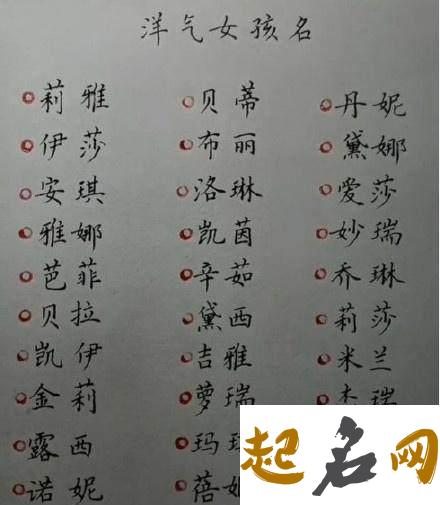 洋气女孩名
莉雅 贝蒂 丹妮
伊莎 布丽 黛娜
安琪 洛琳 爱莎
雅娜 凯茵 妙瑞
芭菲 辛茹 乔琳
贝拉 黛西 莉莎
凯伊 吉雅 米兰
金莉 萝瑞
露西
诺妮
起名网